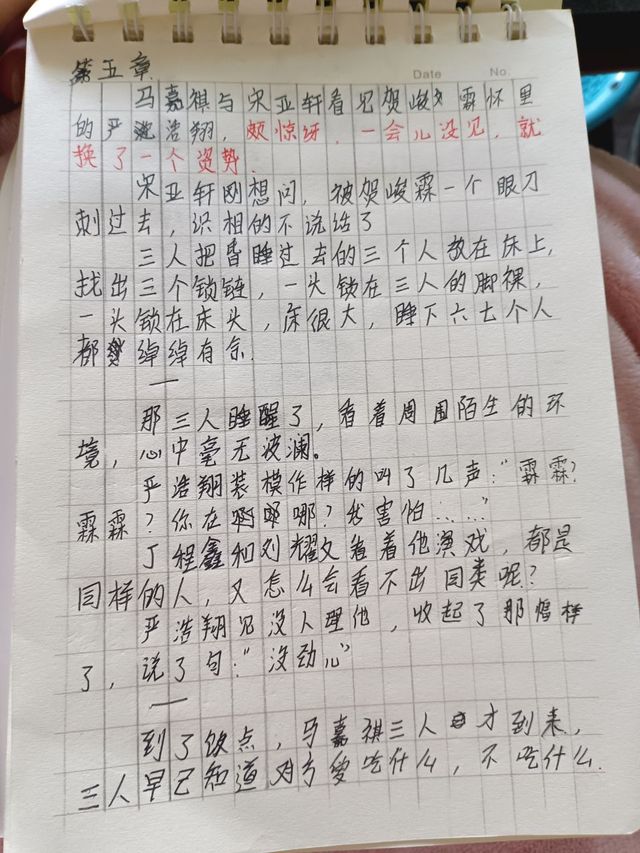 第五章
Date No.
马嘉祺与宋亚轩看见贺峻霖怀里
的严浩翔，颇惊讶，一会儿没见，就
换了一个姿势.
宋亚轩刚想问，被贺峻霖一个眼刀
刺过去，识相的不说话了
三人把昏睡过去的三个人放在床上，
找出三个锁链，一头锁在三人的脚裸，
一头锁在床头，床很大，睡下六七个人
都绰绰有余.
—
那三人睡醒了，看着周围陌生的环
境，心中毫无波澜。
严浩翔装模作样的叫了几声："霖霖？
霖霖？你在哪？我害怕……"
丁程鑫和刘耀文看着他演戏，都是
同样的人，又怎么会看不出同类呢？
严浩翔见没人理他，收起了那幅样
了，说了句："没劲儿"
—
到了饭点，马嘉祺三人才到来，
三人早已知道对方爱吃什么，不吃什么.